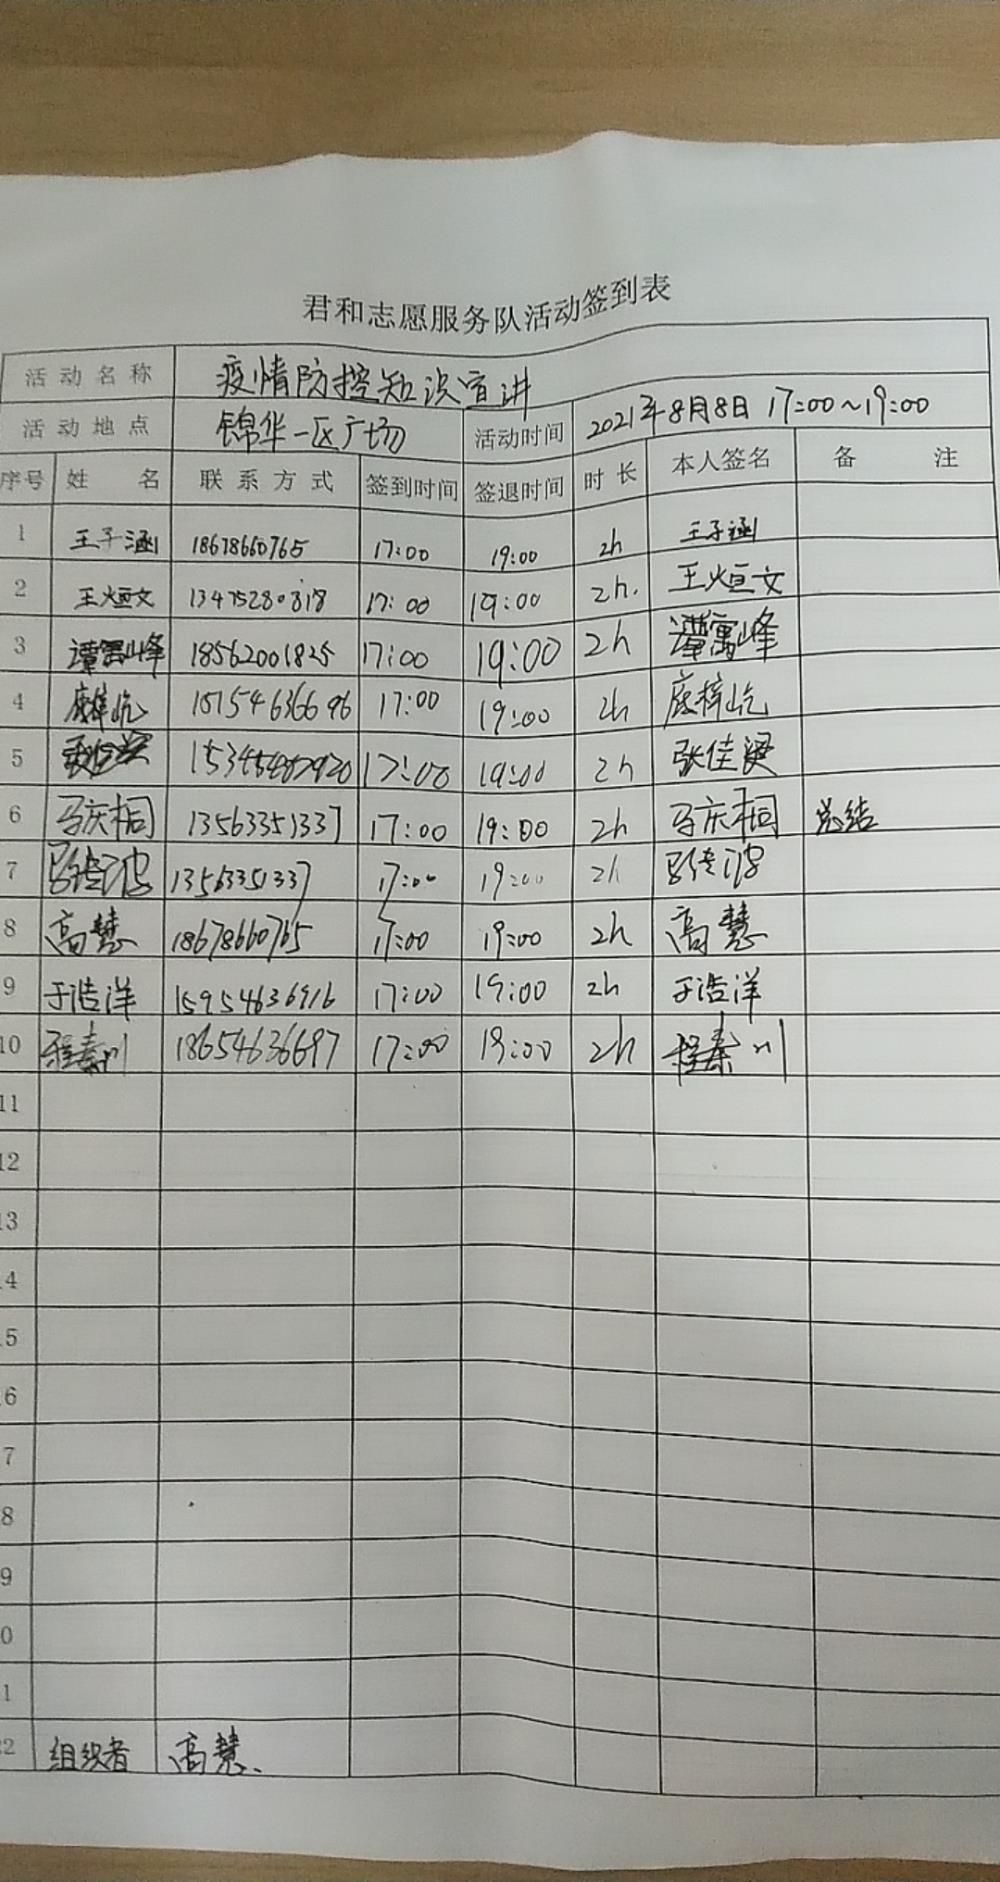 君和志愿服务队活动签到表
活动名称 疫情防控知识宣讲
活动地点 锦华一区广场 活动时间 2021年8月8日 17:00~19:00
序号 姓名 联系方式 签到时间 签退时间 时长 本人签名 备注
1 王子涵 18678660765 17:00 19:00 2h 王子涵
2 王烜文 13475280818 17:00 19:00 2h. 王烜文
3 谭寓峰 18562001825 17:00 19:00 2h 谭寓峰
4 17:00 19:00 2h
5 17:00 19:00 2h 张佳
6 马庆桐 13563351337 17:00 19:00 2h 马庆桐 总结
7 13563351337 17:00 19:00 2h
8 高慧 18678660765 17:00 19:00 2h 高慧
9 于浩洋 15954636916 17:00 19:00 2h 于浩洋
10 程秦川 18654636697 17:00 19:00 2h 程秦川
11
12
13
4
5
6
7
8
9
0
1
22 组织者 高慧.